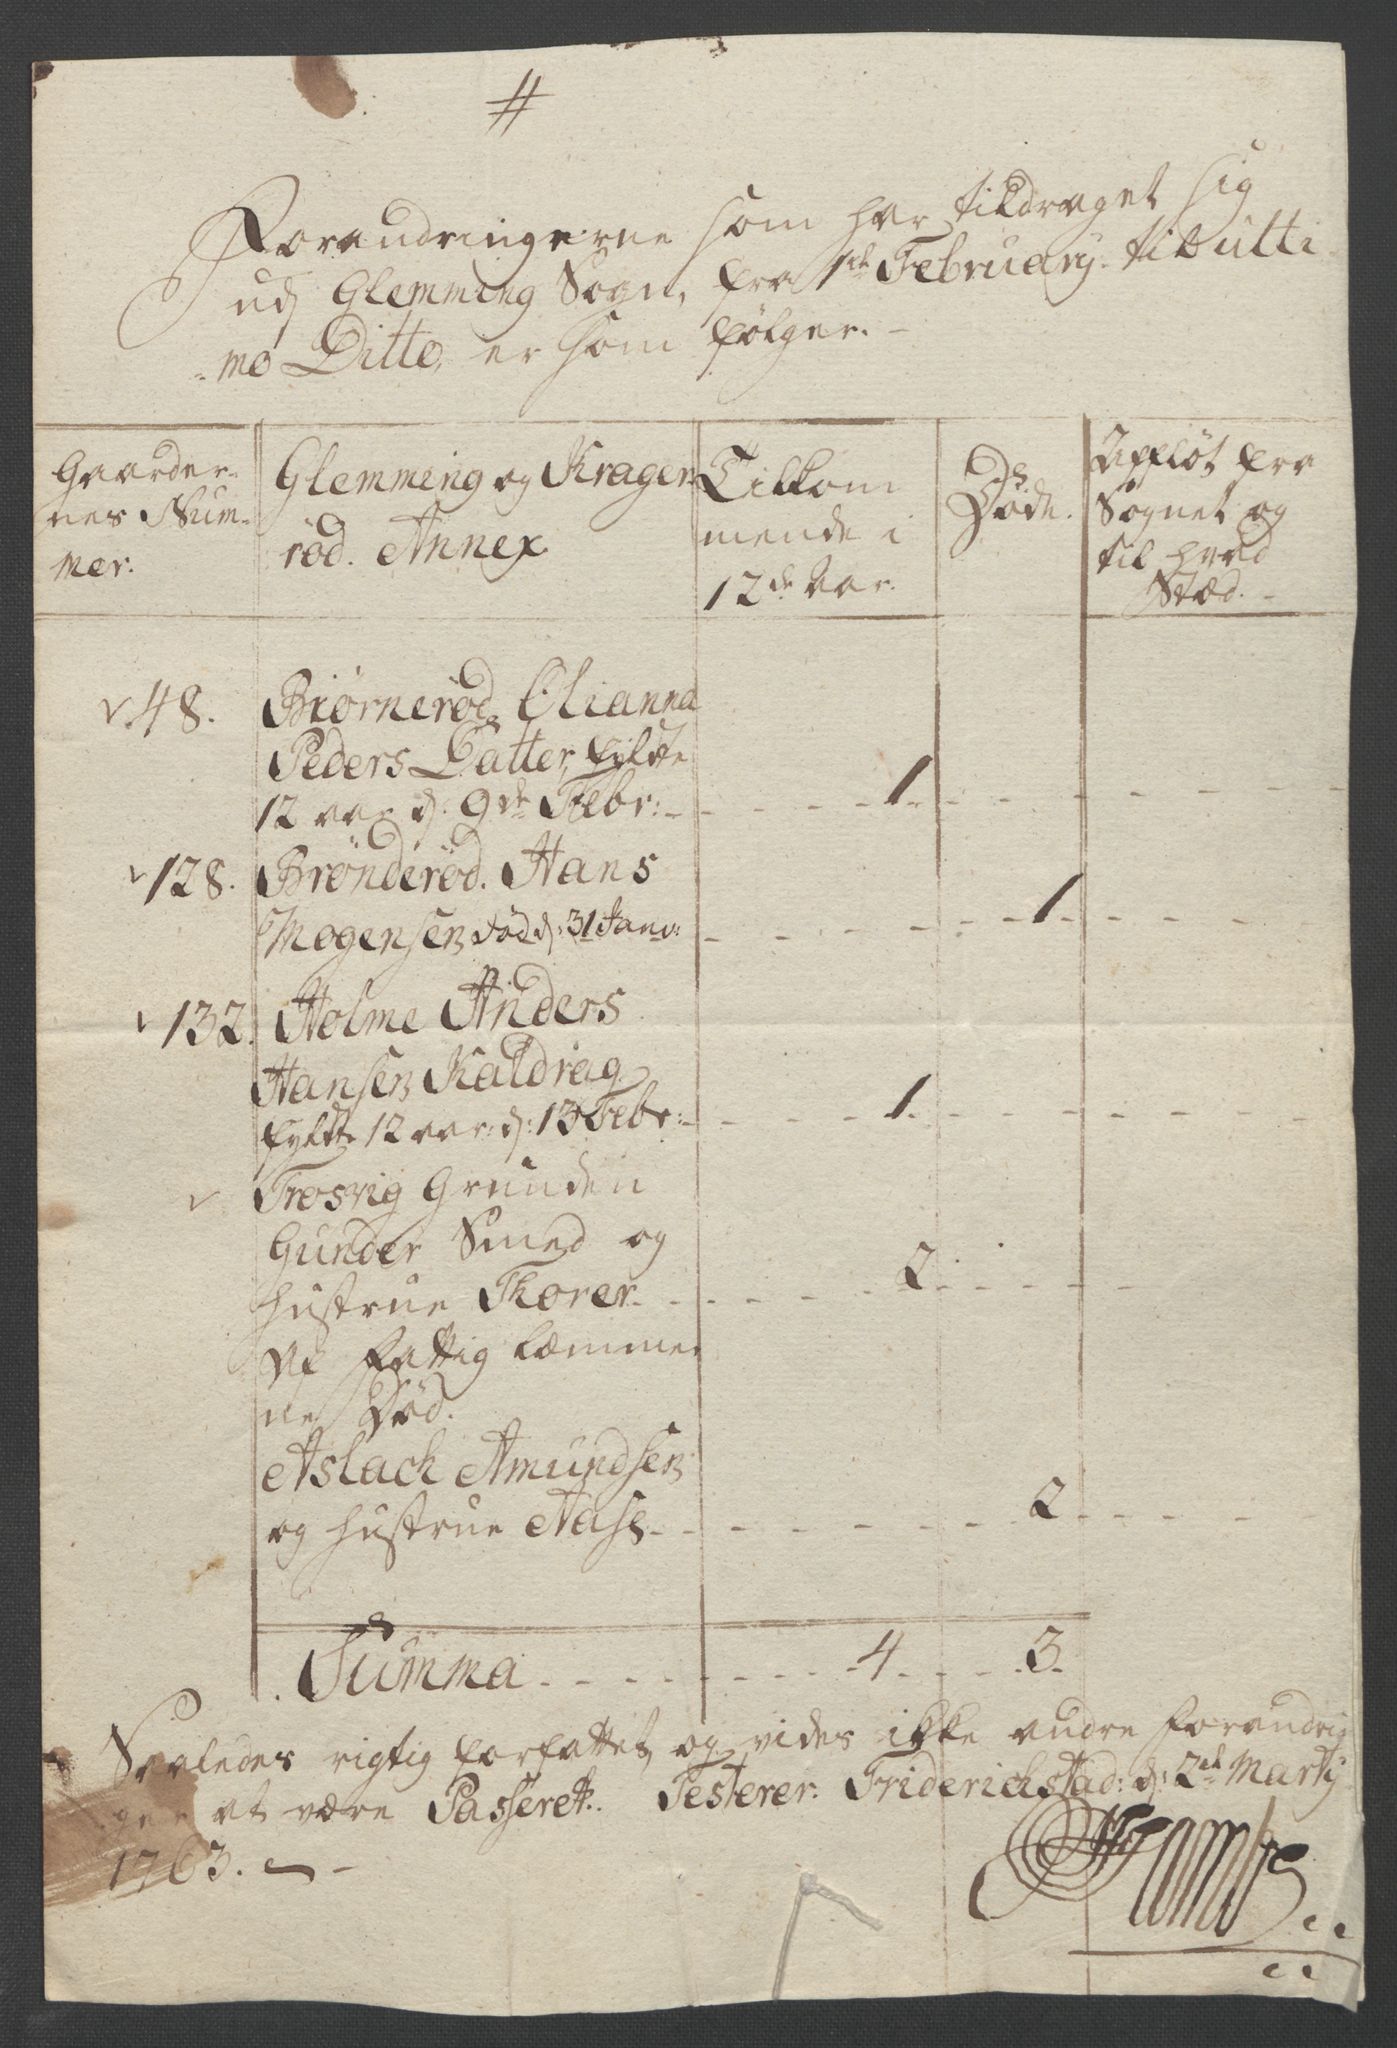 #
Forandringerne som har tildraget sig
udj Glemming Sogn, fra 1de February til ulti
mo Ditto, er som følger. -
Gaarder-
nes Num-
mer.
Glemming og Krager-
röd. Annex
Tilkom
mende i
12de Aar.
Døde.
Afflöt fra
Sognet og
til hvad
Stæd. -
48. Biørneröd, Olianna
Peders Datter, fyldte
12 aar d: 9de Febr: - 1
128. Brönderöd. Hans
Mogensen död d: 31 Janu: 1
132. Holme Anders
Hansen Kaldrag
fyldte 12 aar: d: 13 Febr: 1
Trosvig Grunden
Gunder Smed og
hustrue Thorer. 2
Af Fattig Lemmer
ne Död.
Aslach Amundsen
og hustrue Aase 2
Summa 4 3
Saaledes rigtig forfattet, og vides ikke andre Forandrin
ger at være Passeret. Testerer. Friderichstad: d: 2de Marty
1763.